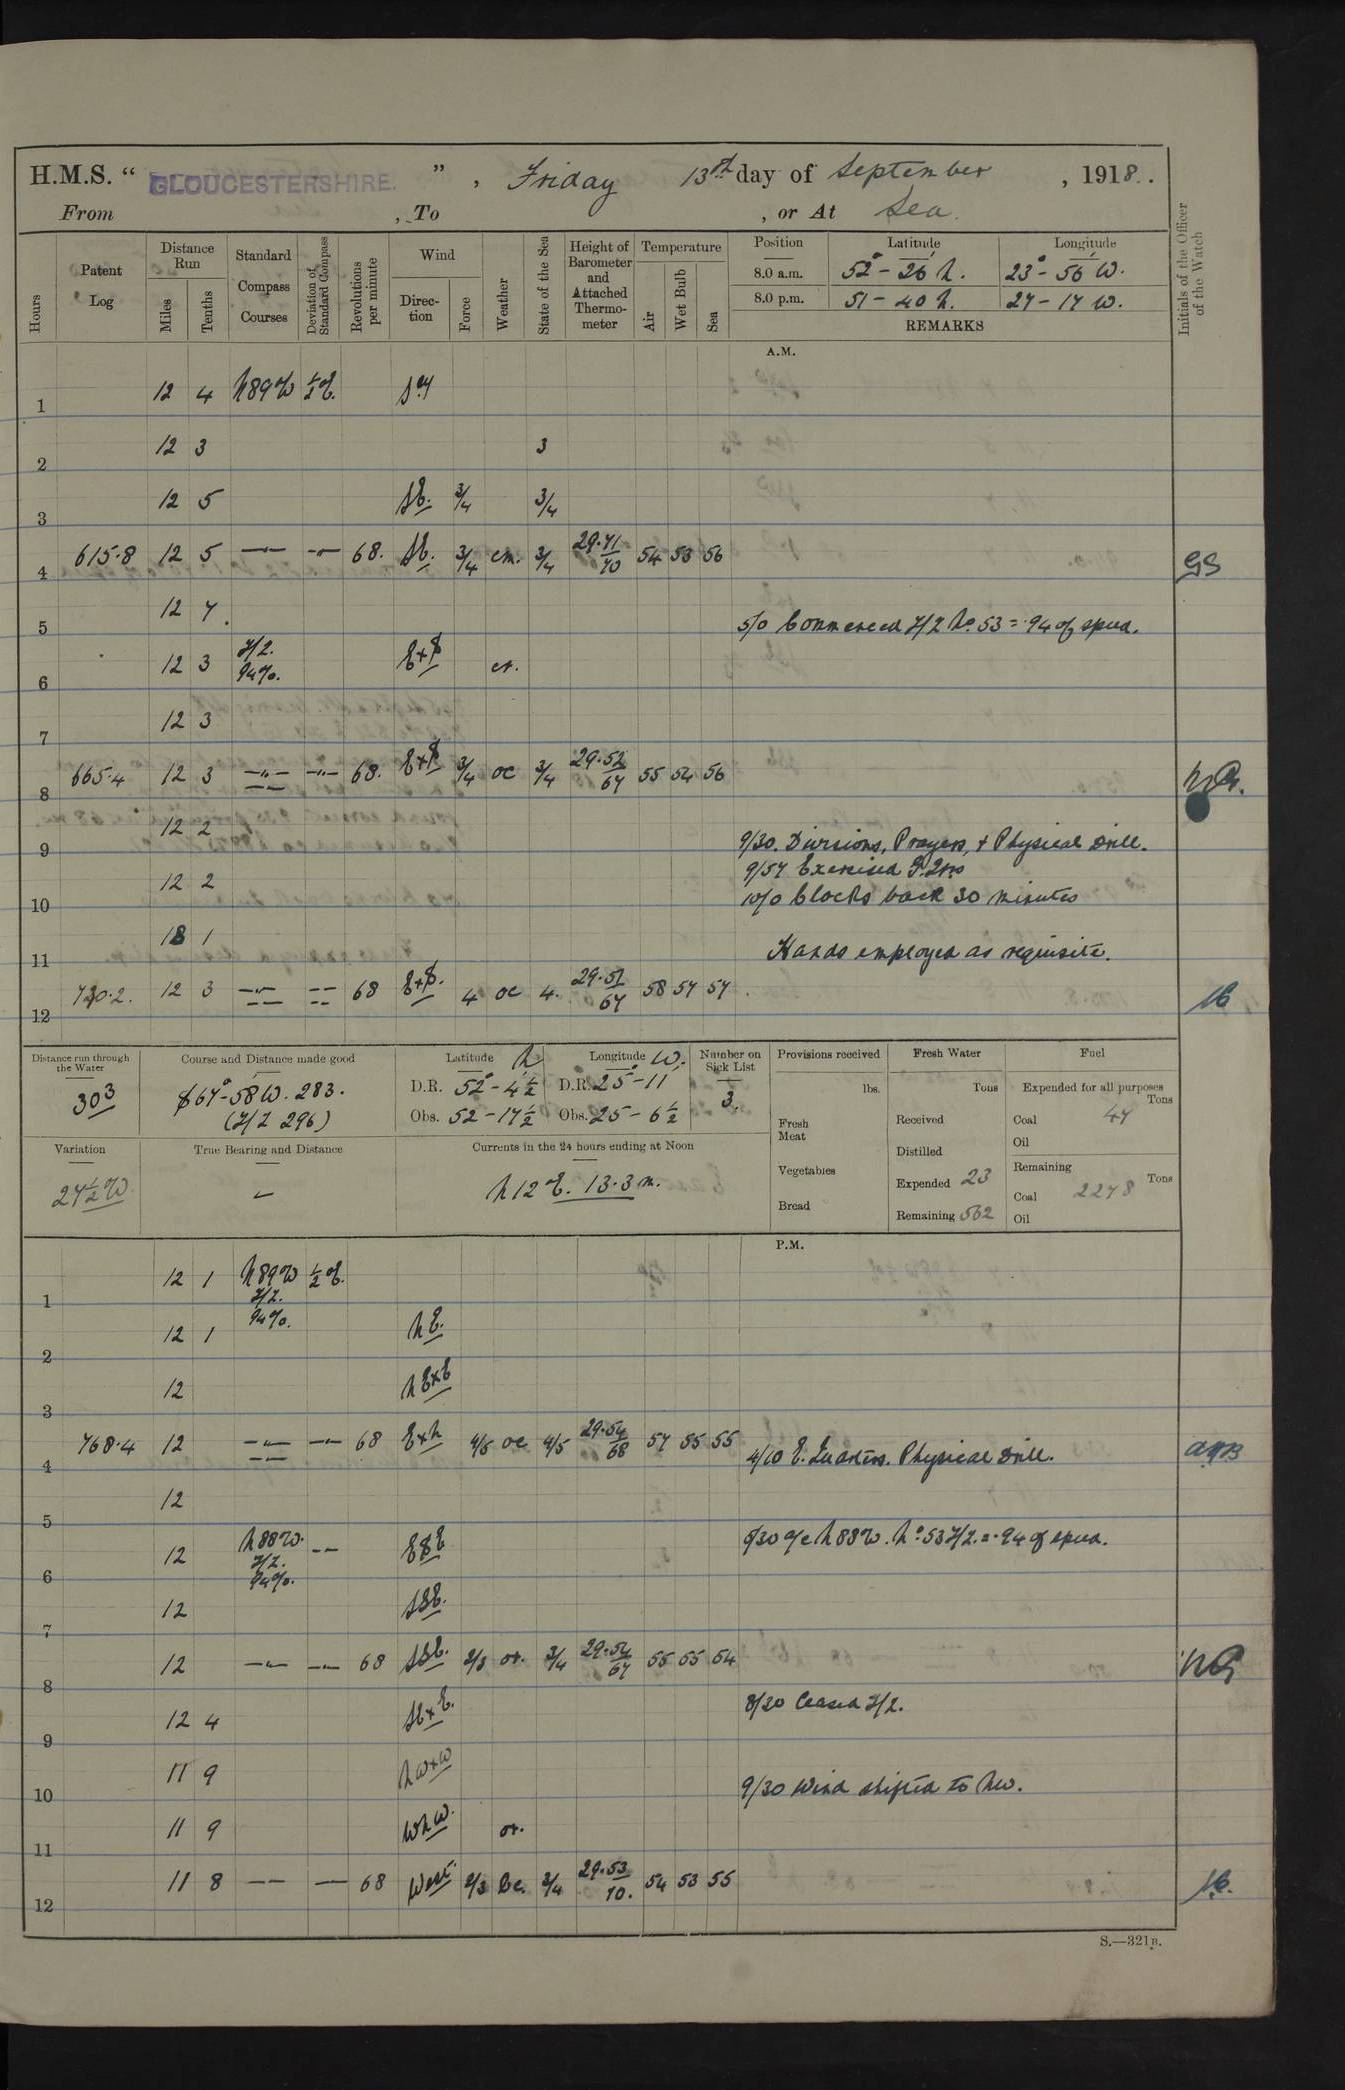 H.M.S. “ GLOUCESTERSHIRE. ” , Friday 13th day of September , 1918.
From , To , or At Sea.
Hours
Patent Log
Distance Run
Miles
Tenths
Standard Compass Courses
Deviation of Standard Compass
Revolutions per minute
Wind
Direction
Force
Weather
State of the Sea
Height of Barometer and Attached Thermometer
Temperature
Air
Wet Bulb
Sea
Position Latitude Longitude
8.0 a.m. 52° - 26 N. 23° - 56 W.
8.0 p.m. 51 - 40 N. 27 - 17 W.
REMARKS
Initials of the Officer of the Watch
A.M.
1 12 4 N89W ½E.
2 12 3 3
3 12 5 SE. 3/4 3/4
4 615.8 12 5 —"— —"— 68. SE. 3/4 cm. 3/4 29.71/70 54 53 56 GS
5 12 7 5/0 Commenced Z/Z No 53 = .94 of speed.
6 12 3 Z/Z. 94%. E+S
7 12 3
8 665.4 12 3 —"— —"— 68. E+S 3/4 oc 3/4 29.52/67 55 54 56
9 12 2 9/30. Divisions, Prayers, + Physical Drill.
9/57 Exercised
10 12 2 10/0 Clocks back 30 minutes
11 1 Hands employed as requisite.
12 12 3 —"— — — 68 E+S. 4 oc 4. 29.51/67 58 57 57
Distance run through the Water
303
Course and Distance made good
S67° - 58 W. 283.
(Z/Z 296)
Latitude N
D.R. 52° - 4½
Obs. 52 - 17½
Longitude W.
D.R. 25° - 11
Obs. 25 - 6½
Number on Sick List
3.
Provisions received
lbs.
Fresh Meat
Vegetables
Bread
Fresh Water
Tons
Received
Distilled
Expended 23
Remaining 562
Fuel
Expended for all purposes
Tons
Coal 47
Oil
Remaining
Tons
Coal 2278
Oil
Variation
27½W
True Bearing and Distance
—
Currents in the 24 hours ending at Noon
N12E. 13.3 m.
P.M.
1 12 1 N89W ½E. Z/Z. 94%.
2 12 1 NE.
3 12 NE+E
4 768.4 12 —"— —"— 68 E+N 4/5 oc 4/5 29.54/68 57 55 55 4/10 E. Quarters. Physical Drill.
5 12
6 12 N88W. Z/Z. 94%. — — ESE 5/30 a/c N88W. No 53 Z/Z. = .94 of speed.
7 12 SSE.
8 12 —"— —"— 68 SSE. 2/3 or. 3/4 29.54/67 55 55 54
9 12 4 SE+E. 8/30 Ceased Z/Z.
10 11 9 NW+W 9/30 Wind shifted to NW.
11 11 9 WNW. or.
12 11 8 — — — 68 West. 2/3 Bc. 3/4 29.53/70. 54 53 55
S.—321B.